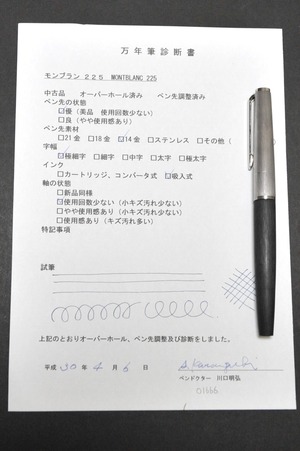 万年筆診断書
モンブラン 225 MONTBLANC 225
中古品 オーバーホール済み ペン先調整済み
ペン先の状態
□優(美品 使用回数少ない)
□良(やや使用感あり)
ペン先素材
□21金 □18金 ☑14金 □ステンレス □その他(
字幅
☑極細字 □細字 □中字 □太字 □極太字
インク
□カートリッジ、コンバータ式 ☑吸入式
軸の状態
□新品同様
☑使用回数少ない(小キズ汚れ少ない)
□やや使用感あり(小キズ汚れ少ない)
□使用感あり(キズ汚れ多い)
特記事項
試筆
上記のとおりオーバーホール、ペン先調整及び診断をしました。
平成 30 年 4 月 6 日
ペンドクター 川口明弘
01666